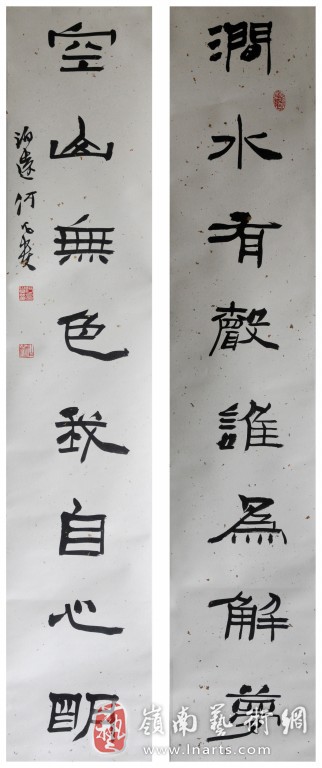 澗水有聲誰為解
空山無色我自心眀
嶺南藝術網
www.lnarts.com